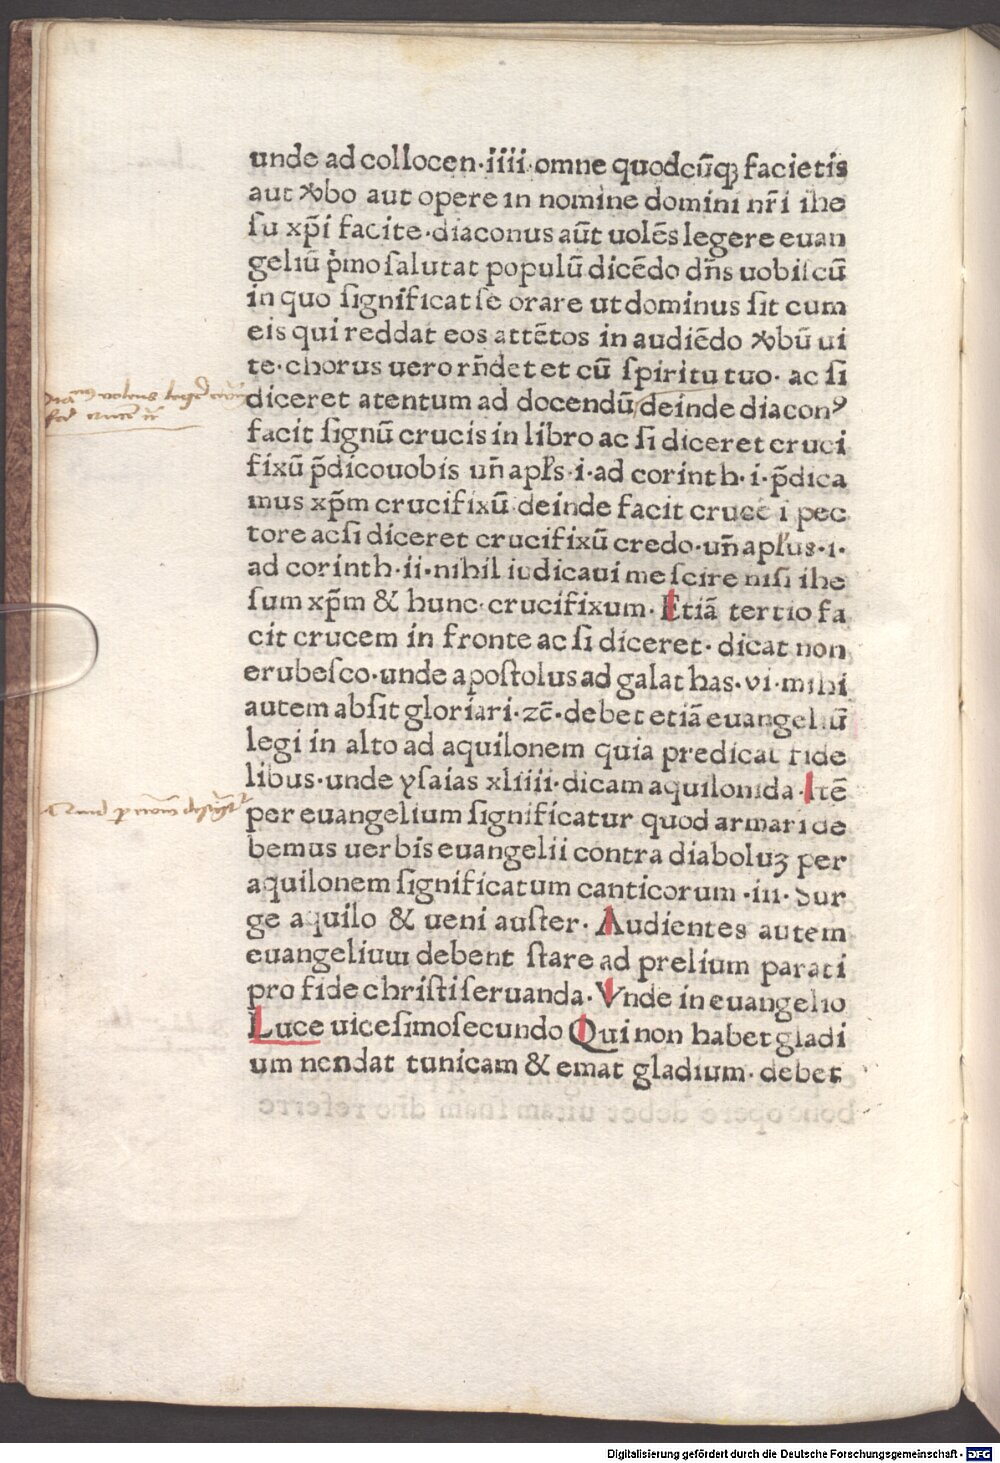 unde ad collocen·iiii·omne quodcūqꝫ facietis
aut ꝟbo aut opere in nomine domini nr̄i ihe
ſu xp̄i facite·diaconus aūt uolēs legere euan
geliū p̄mo ſalutat populū dicēdo dn̄s uobiſcū
in quo ſignificat ſe orare ut dominus ſit cum
eis qui reddat eos attētos in audiēdo ꝟbū ui
te·chorus uero rn̄det et cū ſpiritu tuo· ac ſi
diceret atentum ad docendū deinde diaconꝰ
facit ſignū crucis in libro ac ſi diceret cruci
fixū p̄dico uobis un̄ apl̄s·i·ad corinth·i·p̄dica
mus xp̄m crucifixū deinde facit crucē i pec
tore ac ſi diceret crucifixū credo·un̄ apl̄us·i·
ad corinth·ii·nihil iudicaui me ſcire niſi ihe
ſum xp̄m & hunc·crucifixum· Etiā tertio fa
cit crucem in fronte ac ſi diceret· dicat non
erubeſco·unde apoſtolus ad galathas·vi·mihi
autem abſit gloriari·zc̄·debet etiā euangeliū
legi in alto ad aquilonem quia predicat fide
libus·unde yſaias xliiii·dicam aquilonida·Itē
per euangelium ſignificatur quod armari de
bemus uerbis euangelii contra diaboluꝫ per
aquilonem ſignificatum canticorum ·iii· Sur
ge aquilo & ueni auſter· Audientes autem
euangelium debent ſtare ad prelium parati
pro fide chriſti ſeruanda· Vnde in euangelio
Luce uiceſimoſecundo Qui non habet gladi
um nendat tunicam & emat gladium· debet
Digitalisierung gefördert durch die Deutsche Forschungsgemeinschaft - DFG